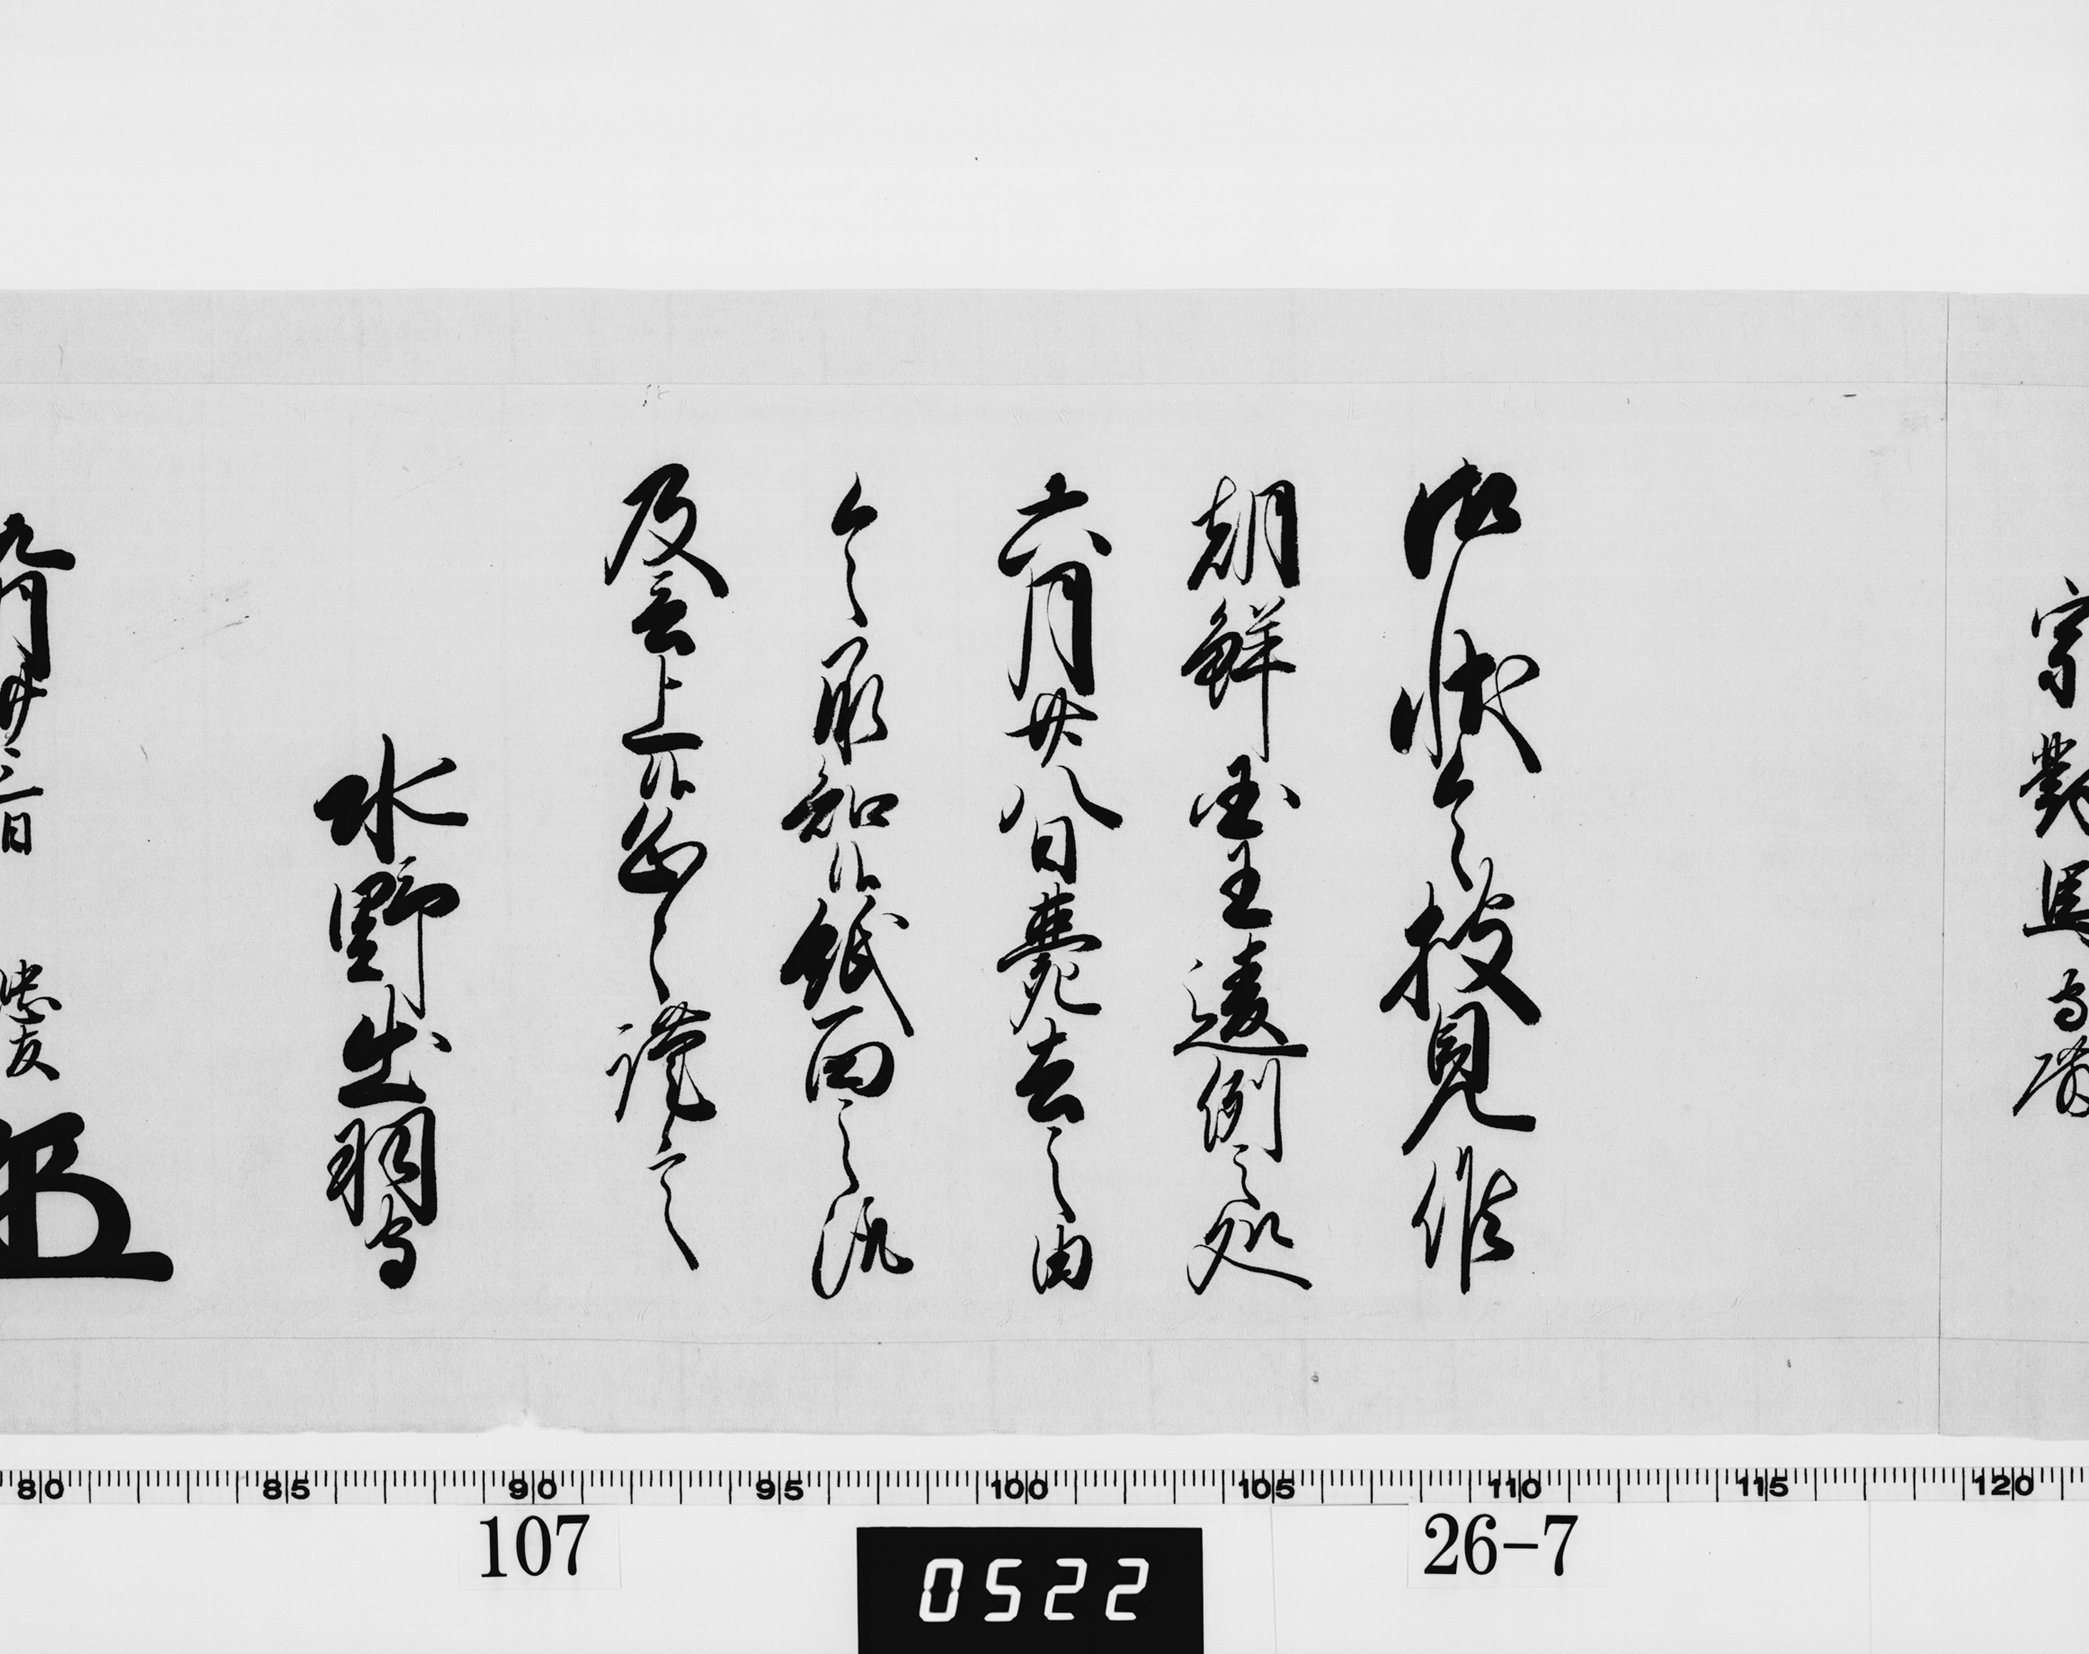 宗對馬守殿
御状令披見候
朝鮮国王違例之処
六月廿八日薨去之由
令承知候紙面之趣
及言上候恐々謹言
水野出羽守
九月廿二日 忠友
80 85 90 95 100 105 110 115 120
107
26-7
0522